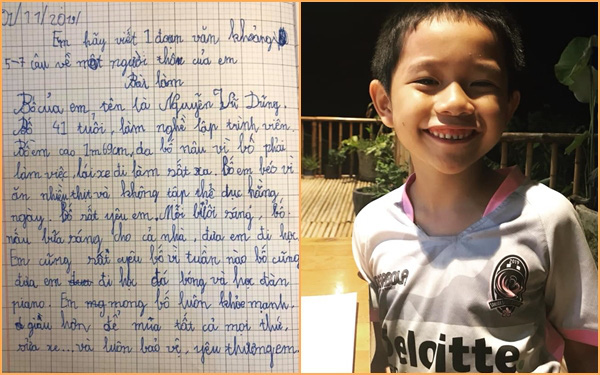 01/11/2019/
Em hãy viết 1 đoạn văn khoảng
5-7 câu về một người thân của em
Bài làm
Bố của em tên là Nguyễn Vũ Dũng.
Bố 41 tuổi, làm nghề lập trình viên.
Bố em cao 1m69cm, da bố nâu vì bố phải
làm việc, lái xe đi làm rất xa. bố em béo vì
ăn nhiều thứ và không tập thể dục hằng
ngày. bố rất yêu em. Mỗi bưởi ráng, bố
nấu bữa ráng cho cả nhà, đưa em đi học.
Em cũng rất yêu bố vì tuần nào bố cũng
đưa em đi học đá bóng và học đàn
piano. Em mong bố luôn khỏe mạnh
giàu hơn để mua tất cả mọi thứ,
vừa xe... và luôn bảo vệ, yêu thương em.
Deloitte